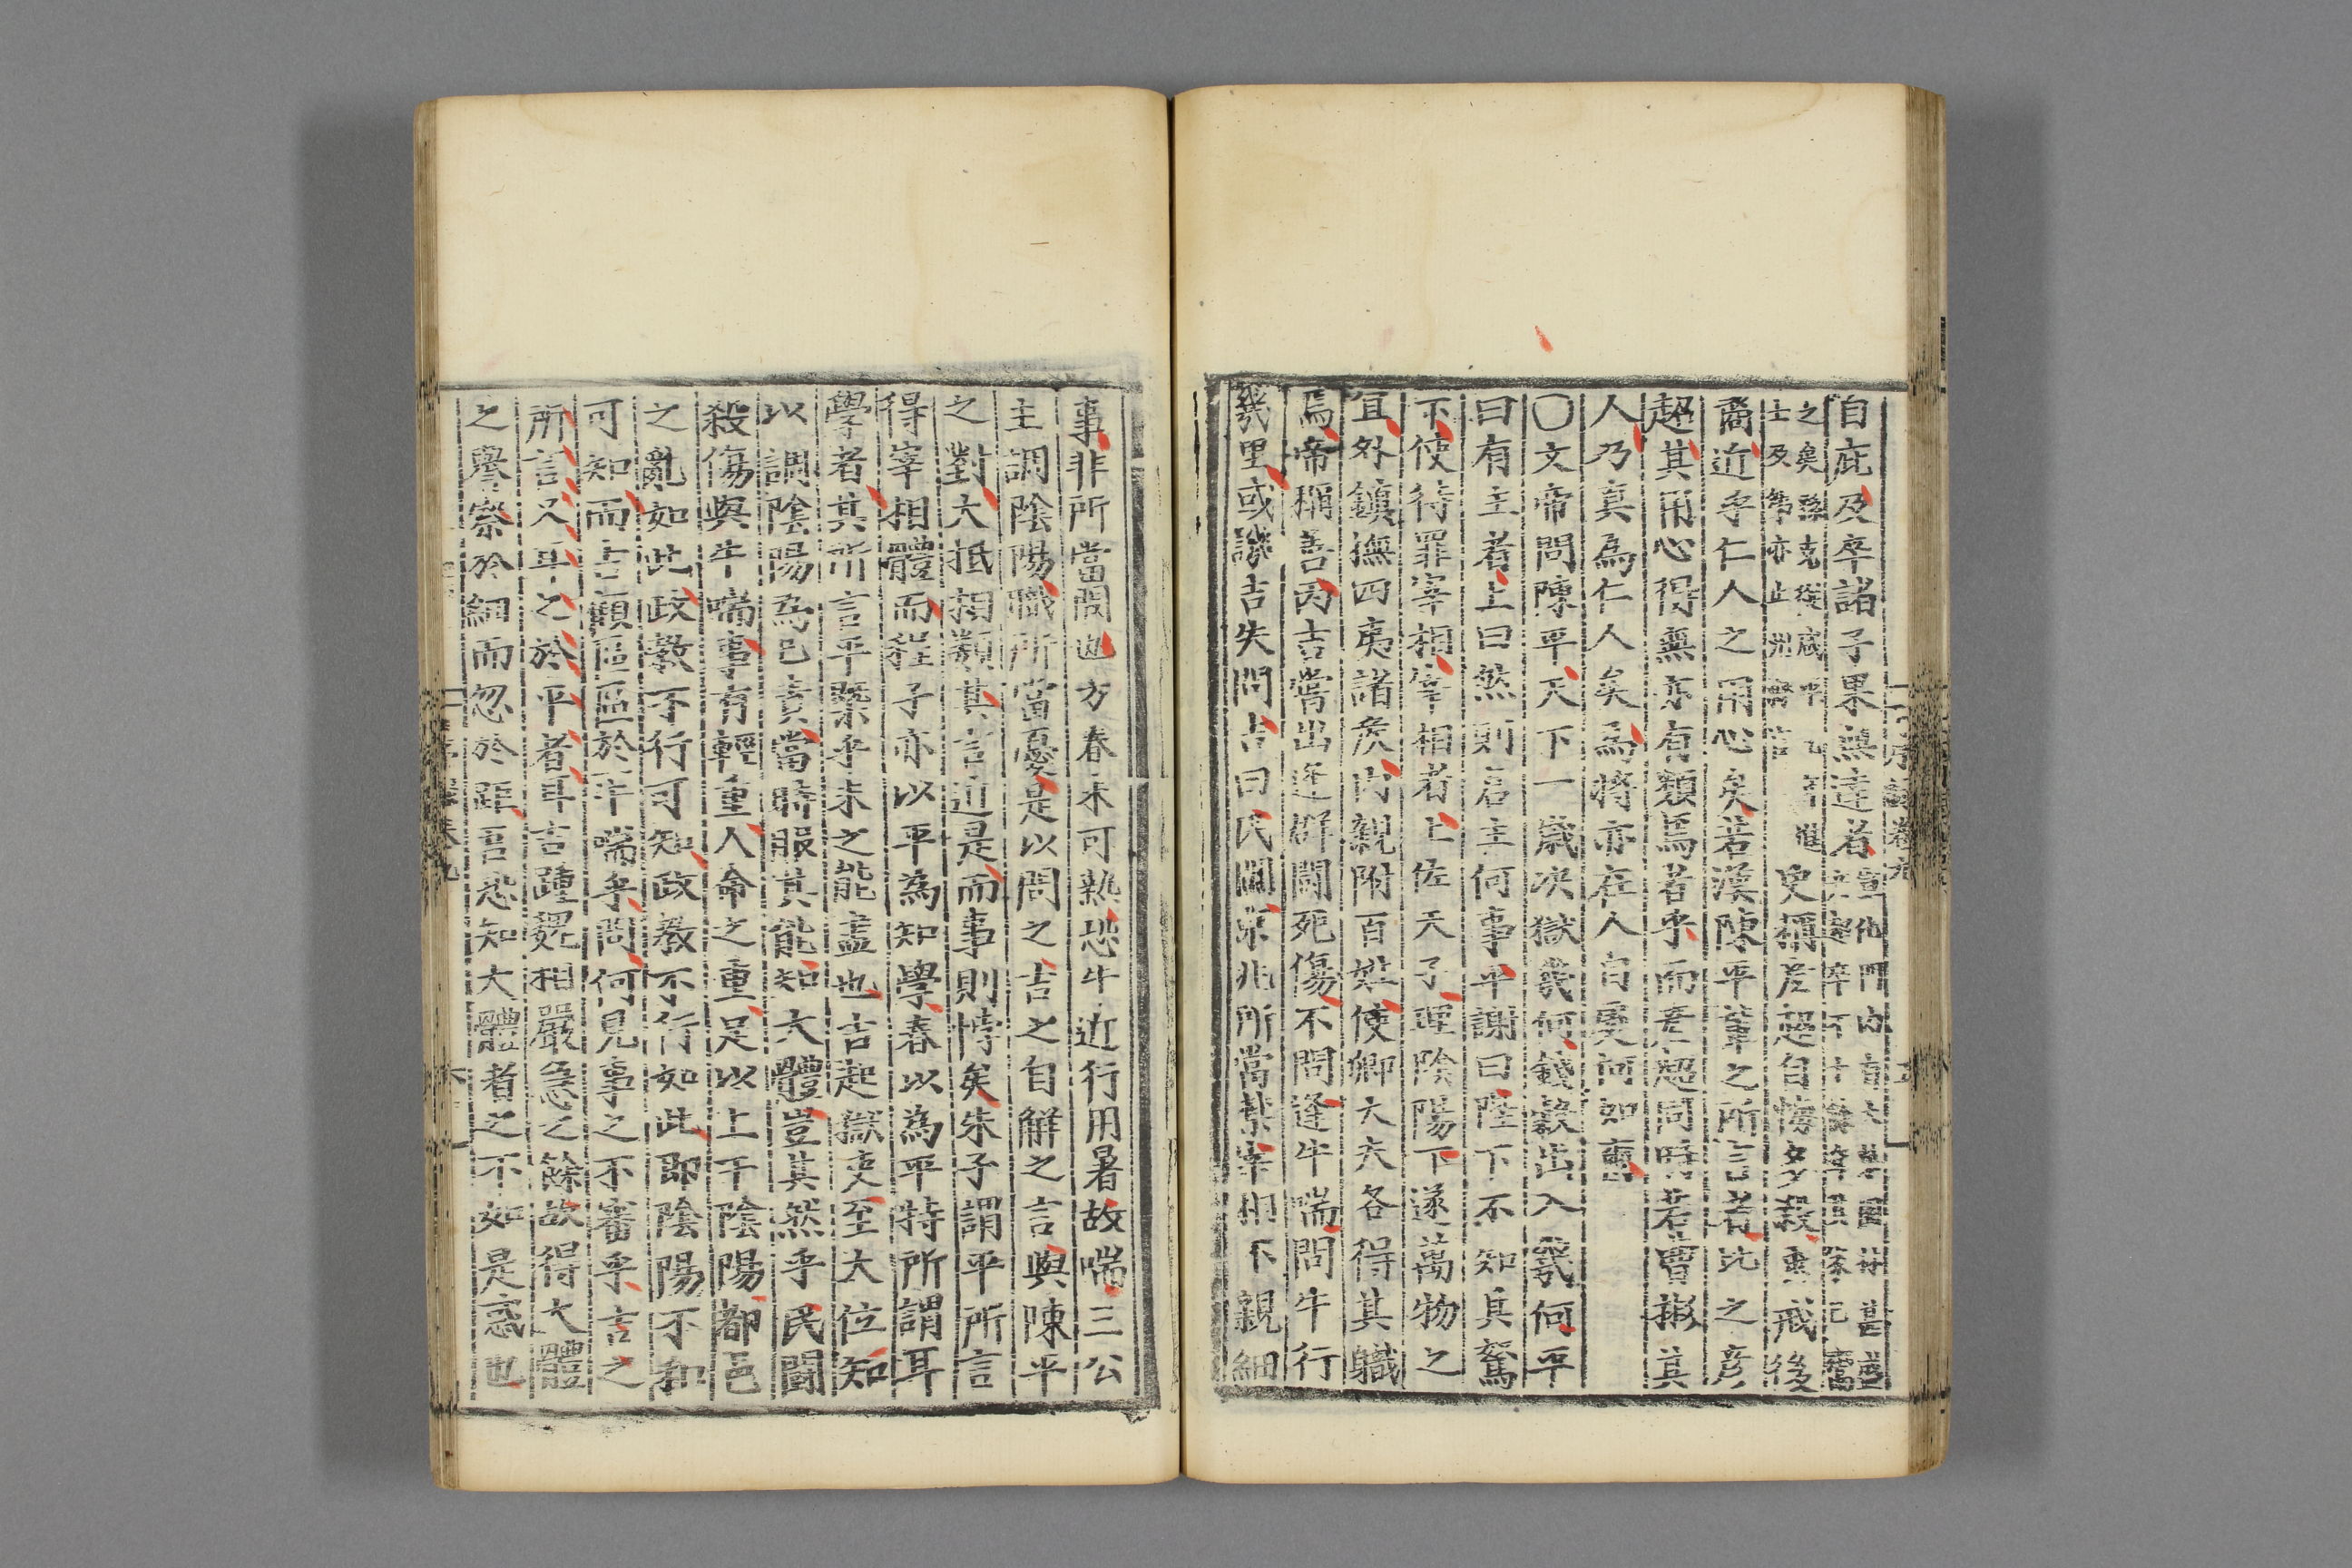 自庇及卒諸子果無達者
之矣
士及
史稱彦超自悔多殺重戒後
裔近乎仁人之用心矣若漢陳平輩之所言者比之彦
超其用心得無亦有類焉者乎而彦超同時若曹彬其
人乃真為仁人矣為將亦在人自處何如耳
〇文帝問陳平天下一歲决獄幾何錢穀出入幾何平
曰有主者上曰然則君主何事平謝曰陛下不知其駑
下使待罪宰相宰相者上佐天子理陰陽下遂萬物之
宜外鎮撫四夷諸侯内親附百姓使卿大夫各得其職
焉帝稱善丙吉嘗出逢群鬬死傷不問逢牛喘問牛行
幾里或譏吉失問吉曰民鬬京兆所當禁宰相不親細
事非所當問也方春未可熱恐牛近行用暑故喘三公
主調陰陽職所當憂是以問之吉之自解之言與陳平
之對大抵相類其言近是而事則悖矣朱子謂平所言
得宰相體而程子亦以平為知學春以為平特所謂耳
學者其所言平槩乎未之能盡也吉起獄吏至大位知
以調陰陽為己責當時服其能知大體豈其然乎民鬬
殺傷與牛喘事有輕重人命之重足以上干陰陽都邑
之亂如此政教不行可知政教不行如此即陰陽不和
可知而吉顧區區於牛喘乎問何見事之不審乎吉之
所言又耳之於平者耳吉踵魏相嚴急之餘故得大體
之譽察於細而忽於鉅吾恐知大體者之不如是惑也